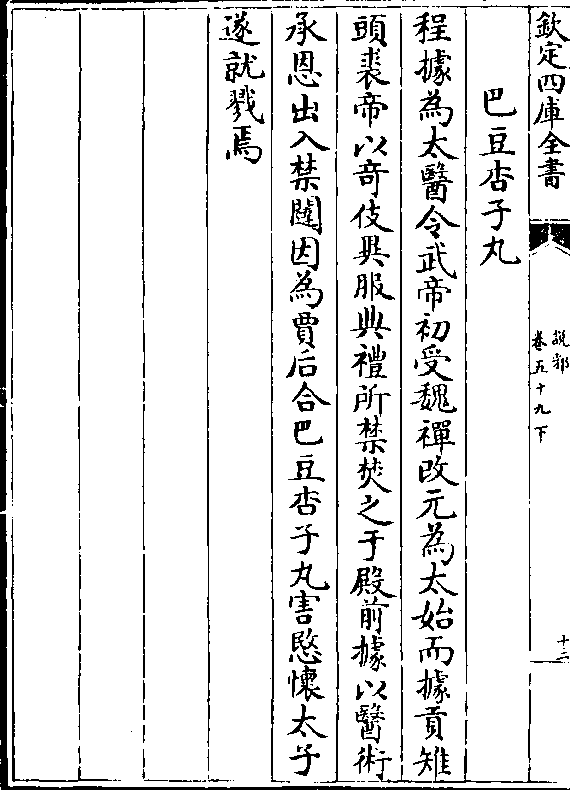 欽定四庫全書
說郛
卷五十九下
十三
巴豆杏子丸
程據為太醫令武帝初受魏禪改元為太始而據貢雉
頭裘帝以竒伎異服典禮所禁焚之于殿前據以醫術
承恩出入禁闥因為賈后合巴豆杏子丸害愍懷太子
遂就戮焉